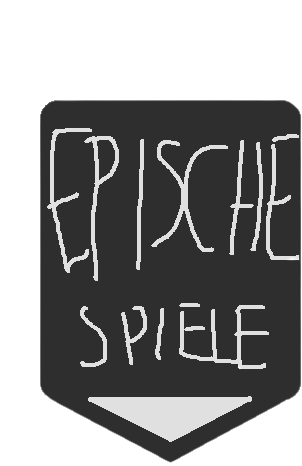 EPISCHE
SPIELE